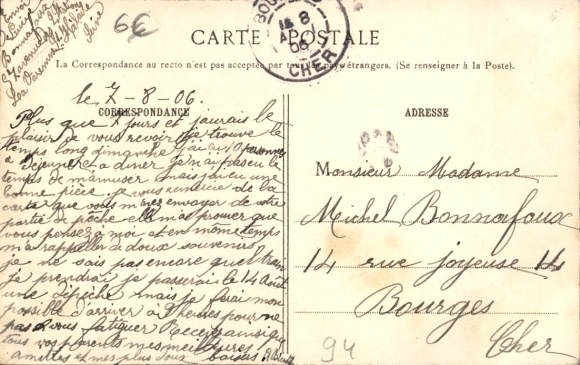 6€
BOURGES
8
06
CHER
CARTE POSTALE
La Correspondance au recto n'est pas acceptée par tous les pays étrangers. (Se renseigner à la Poste).
le 7-8-06.
CORRESPONDANCE
Plus que 7 jours et j'aurais le
plaisir de vous revoir je trouve le
temps long dimanche j'ai eu 10 personnes
a déjeuner et a diner je n'ai pas eu le
temps de m'amuser mais j'ai eu une
bonne pièce. je vous remercie de la
carte que vous m'avez envoyer de votre
partie de pêche elle m'as prouver que
vous pensez a moi et en même temps
m'a rappeller de doux souvenirs
je ne sais pas encore quel train
je prendrai je passerai le 14 Août
une dépêche mais je ferai mon
possible d'arriver a heures pour ne
pas vous fatiguer Recevez ainsi que
tous vos parents mes meilleures
amitiés et mes plus doux baisers
ADRESSE
Monsieur Madame
Michel Bonnafoux
14 rue joyeuse 14
Bourges
Cher
94